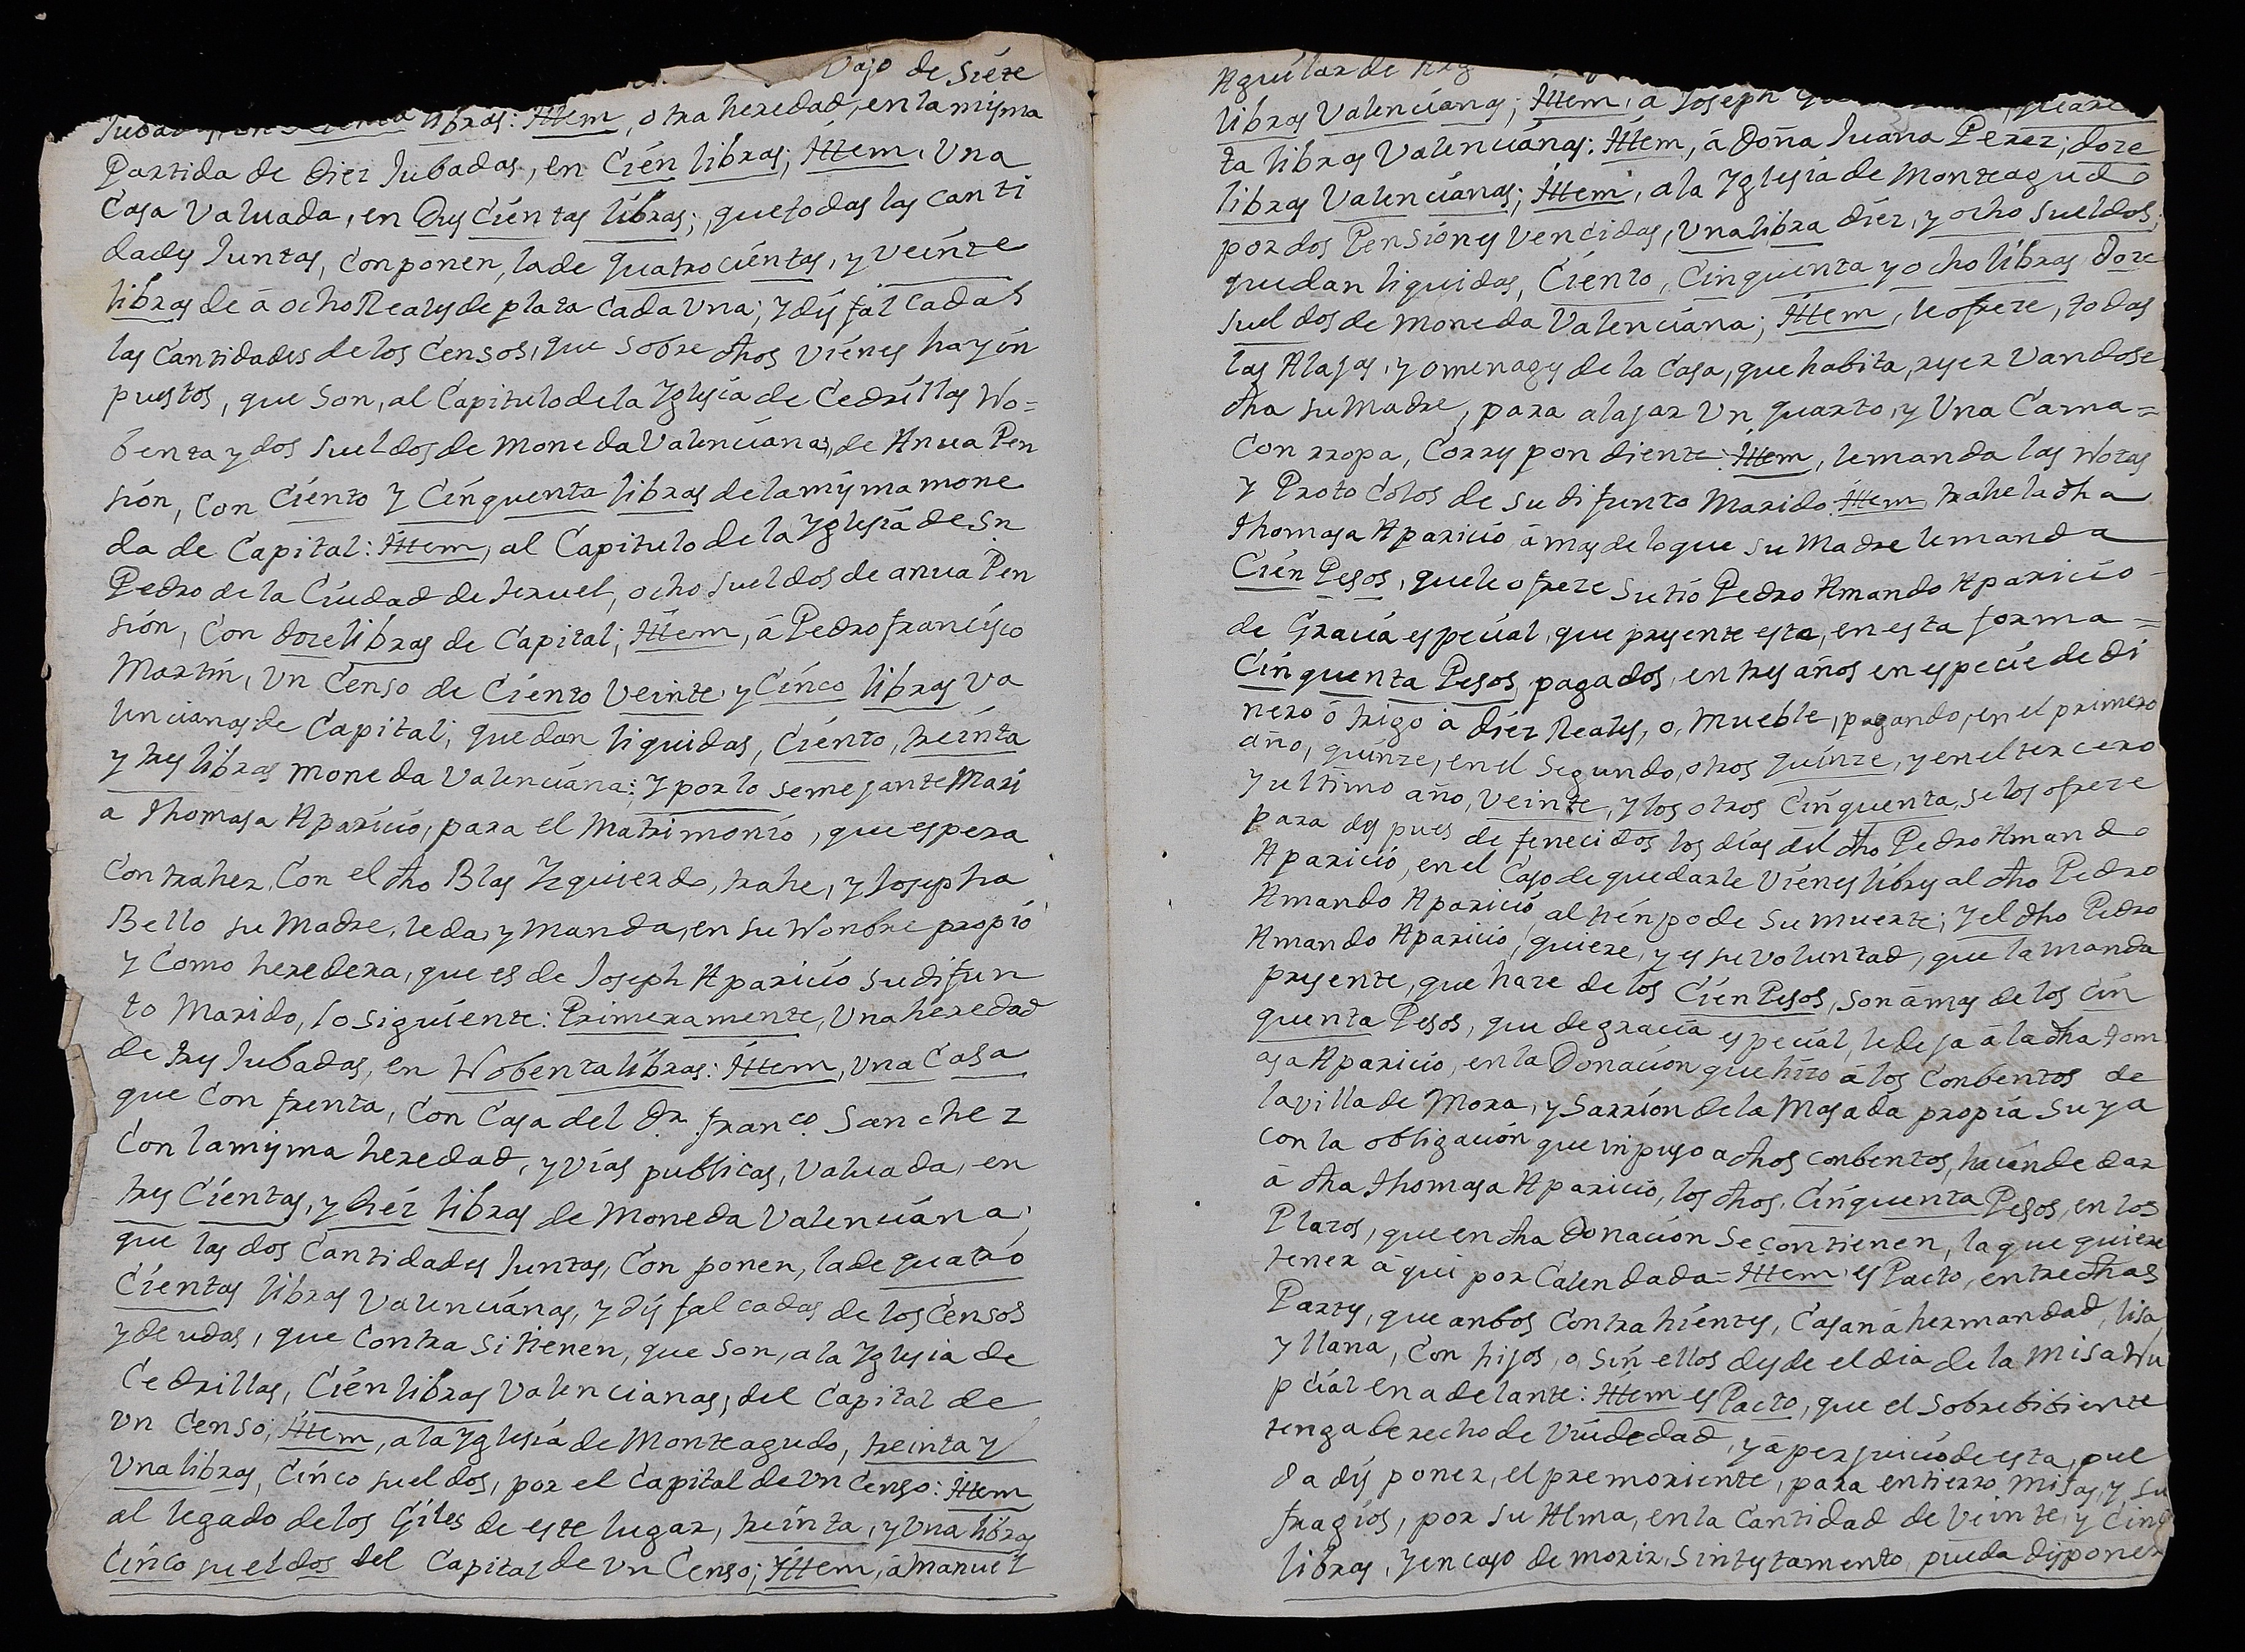 Vajo de Siéte
libras: Ittem, otra heredad, en la mysma
Partida de diez Jubadas, en Cién libras; Ittem, Una
Casa Valuada, en Duscientas libras; que todas las Canti
dadys Juntas, Conponen, la de quatrocientas, y Veinte
libras de á ocho Realys de plata Cada Una; Y dysfalcadas
las Cantidades de los Censos, que Sobre dhos Viénes hay in
puestos, que Son, al Capitulo de la Yglesia de Cedrillas No=
benta y dos Sueldos de Moneda Valenciana, de Anua Pen
sión, Con Ciento Y Cinquenta libras de la mysma mone
da de Capital: Ittem, al Capitulo de la Yglesia de Sn.
Pedro de la Ciudad de teruel, ocho Sueldos de anua Pen
sión, Con doze libras de Capital; Ittem, á Pedro francisco
Martín, Un Censo de Ciento Veinte y Cinco libras Va
lencianas de Capital; quedan liquidas, Ciento, treinta
y trys libras moneda Valenciana; Y por lo semejante Mari
a thomasa Aparicio, para el Matrimonio, que espera
Contraher, Con el dho Blas Yzquierdo, trahe, y Josepha
Bello su Madre, le da, y Manda, en su Nonbre propio
y Como heredera, que es de Joseph Aparicio su difun
to Marido, lo siguiente: Primeramente, Una heredad
de trys Jubadas, en Nobenta libras: Ittem, Una Casa
que Confrenta, Con Casa del Dr. franco. Sanchez
Con la mysma heredad, y Vías publicas, Valuada, en
trys Cientas, y diéz libras de Moneda Valenciána;
que las dos Cantidades Juntas, Conponen, la de quatro
Cientas libras Valenciánas, y dysfalcadas de los Censos
y deudas, que Contra Si tienen, que Son, a la Yglesia de
Cedrillas, Cién libras Valencianas, del Capital de
Un Censo; Ittem, a la Yglesia de Monteagudo, treinta y
Una libras, Cinco sueldos, por el Capital de Un Censo: Ittem
al legado de los Giles de este lugar, treinta, y Una libras
Cinco sueldos del Capital de Un Censo; Ittem, á Manuel
Aguilar de
libras Valencianas; Ittem, a Joseph
ta libras Valencianas: Ittem, á Doña Juana Perez, doze
libras Valencianas; Ittem, a la Yglesia de Monteagudo
por dos Pensiónes Vencidas, Una libra diéz, y ocho Sueldos;
quedan liquidas, Ciento, Cinquenta y ocho libras Doze
Sueldos de Moneda Valenciana; Ittem, le ofreze, todas
las Alajas, y omenages de la Casa, que habita, reserVandose
dha su Madre, para alajar Un quarto, y Una Cama=
Con rropa, Correspondiente: Ittem, le manda las Notas
Y Protocolos de su difunto Marido: Ittem, trahe la dha
thomasa Aparicio á mas de lo que su Madre le manda
Cién Pesos, que le ofreze Su tio Pedro Amando Aparicio
de Gracia especial, que presente esta, en esta forma =
Cinquenta Pesos, pagados, en trys años en especie de di
nero ó trigo á diéz Reales, o, Mueble, pagando, en el primero
año, quinze, en el Segundo, otros quinze, y en el tercero
y ultimo año, Veinte, y los otros Cinquenta, se los ofreze
para dyspues de fenecidos los días del dho Pedro Amando
Aparicio, en el Caso de quedarle Viénes librys al dho Pedro
Amando Aparicio al tiénpo de Su muerte; Y el dho Pedro
Amando Aparicio, quiere, y es su Voluntad, que la manda
presente, que haze de los Cien Pesos, Son á mas de los Cin
quenta Pesos, que de gracia especial, le deja á la dha tom
asa Aparicio, en la Donación que hizo á los Conbentos de
la villa de Mora, y Sarrión de la Masada propia Suya
Con la obligación que inpuso a dhos conbentos, haciénde dar
á dha thomasa Aparicio, los dhos, Cinquenta Pesos, en los
Plazos, que en dha Donación Se contienen, la que quiere
tener á qui por Calendada= Ittem es Pacto, entre dhas
Partes, que anbos Contrahientes, Casan á hermandad, lisa
y llana, Con hijos, o, sin ellos desde el dia de la Misa Nu
pciál en adelante: Ittem es Pacto, que el Sobrebibiente
tenga derecho de Viudedad, y á perjuicio de esta, pue
da dysponer, el premoriente, para entierro Misas, y Su
fragios, por su Alma, en la Cantidad de Veinte, y Cinco
libras, Y en caso de morir, Sin testamento, pueda dysponer